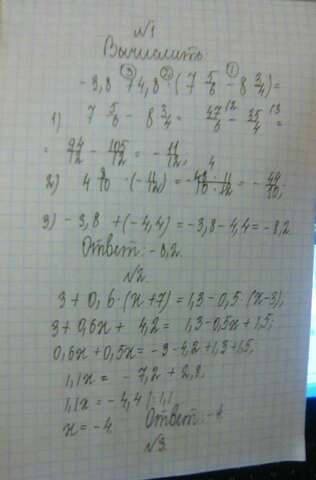 №1
Вычислить:
-3,8 + 4,8 · (7 5/6 - 8 3/4) =
1) 7 5/6 - 8 3/4 = 47/6 - 35/4 =
= 94/12 - 105/12 = - 11/12;
2) 4 8/10 · (-11/12) = - 48·11/10·12 = - 44/10;
3) -3,8 + (-4,4) = -3,8 - 4,4 = -8,2
Ответ: -8,2.
№2.
3 + 0,6 · (x + 7) = 1,3 - 0,5 · (x - 3);
3 + 0,6x + 4,2 = 1,3 - 0,5x + 1,5;
0,6x + 0,5x = -3 - 4,2 + 1,3 + 1,5;
1,1x = -7,2 + 2,8;
1,1x = -4,4 | : 1,1
x = -4 Ответ: -4.
№3.